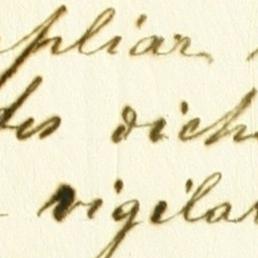 pliar
des dich
vigilar